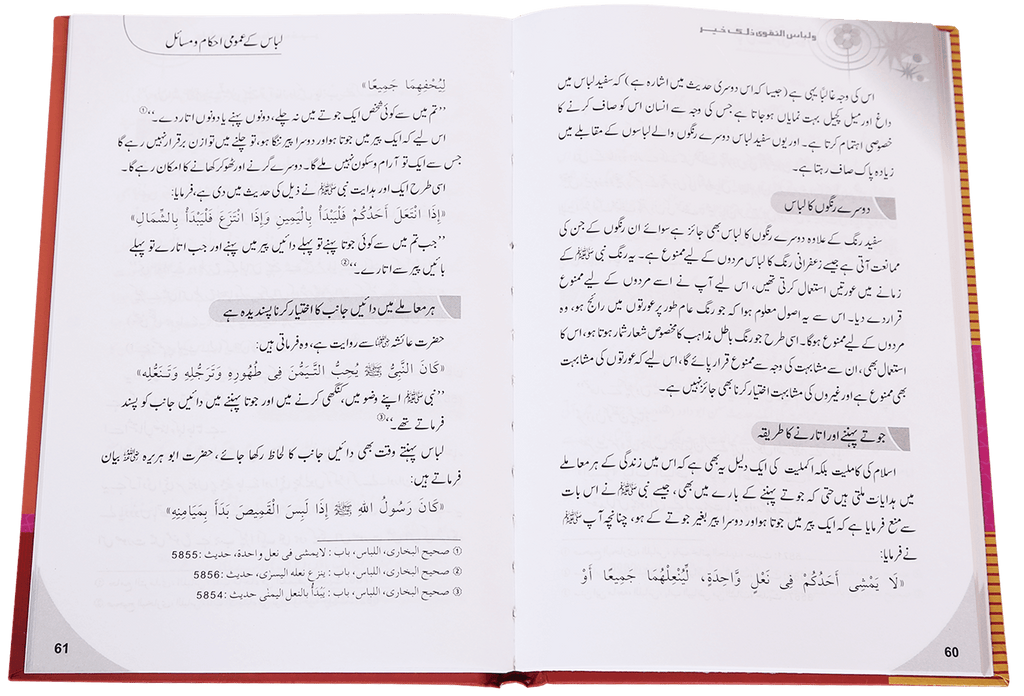 ولباس التقوى ذلك خير
اس کی وجہ غالبًا یہی ہے (جیسا کہ اس دوسری حدیث میں اشارہ ہے) کہ سفید لباس میں
داغ اور میل کچیل بہت نمایاں ہو جاتا ہے جس کی وجہ سے انسان اس کو صاف کرنے کا
خصوصی اہتمام کرتا ہے۔ اور یوں سفید لباس دوسرے رنگوں والے لباسوں کے مقابلے میں
زیادہ پاک صاف رہتا ہے۔
دوسرے رنگوں کا لباس
سفید رنگ کے علاوہ دوسرے رنگوں کا لباس بھی جائز ہے سوائے ان رنگوں کے جن کی
ممانعت آتی ہے جیسے زعفرانی رنگ کا لباس مردوں کے لیے ممنوع ہے۔ یہ رنگ نبی ﷺ کے
زمانے میں عورتیں استعمال کرتی تھیں، اس لیے آپ نے اسے مردوں کے لیے ممنوع
قرار دے دیا۔ اس سے یہ اصول معلوم ہوا کہ جو رنگ عام طور پر عورتوں میں رائج ہو، وہ
مردوں کے لیے ممنوع ہوگا۔ اسی طرح جو رنگ باطل مذاہب کا مخصوص شعار شمار ہوتا ہو، اس کا
استعمال بھی، ان سے مشابہت کی وجہ سے ممنوع قرار پائے گا، اس لیے کہ عورتوں کی مشابہت
بھی ممنوع ہے اور غیروں کی مشابہت اختیار کرنا بھی جائز نہیں ہے۔
جوتے پہننے اور اتارنے کا طریقہ
اسلام کی کاملیت بلکہ اکملیت کی ایک دلیل یہ بھی ہے کہ اس میں زندگی کے ہر معاملے
میں ہدایات ملتی ہیں حتی کہ جوتے پہننے کے بارے میں بھی، جیسے نبی ﷺ نے اس بات
سے منع فرمایا ہے کہ ایک پیر میں جوتا ہو اور دوسرا پیر بغیر جوتے کے ہو، چنانچہ آپ ﷺ
نے فرمایا:
«لَا يَمْشِى أَحَدُكُمْ فِى نَعْلٍ وَّاحِدَةٍ، لِّيُنْعِلْهُمَا جَمِيعًا أَوْ
60
لباس کے عمومی احکام و مسائل
لِيُحْفِهِمَا جَمِيعًا»
’’تم میں سے کوئی شخص ایک جوتے میں نہ چلے، دونوں پہنے یا دونوں اتار دے۔‘‘①
اس لیے کہ ایک پیر میں جوتا ہو اور دوسرا پیر ننگا ہو، تو چلنے میں توازن برقرار نہیں رہے گا
جس سے ایک تو آرام وسکون نہیں ملے گا۔ دوسرے گرنے اور ٹھوکر کھانے کا امکان رہے گا۔
اسی طرح ایک اور ہدایت نبی ﷺ نے ذیل کی حدیث میں دی ہے، فرمایا:
«إِذَا انْتَعَلَ أَحَدُكُمْ فَلْيَبْدَأْ بِالْيَمِينِ وَإِذَا انْتَزَعَ فَلْيَبْدَأْ بِالشِّمَالِ»
’’جب تم میں سے کوئی جوتا پہنے تو پہلے دائیں پیر میں پہنے اور جب اتارے تو پہلے
بائیں پیر سے اتارے۔‘‘②
ہر معاملے میں دائیں جانب کا اختیار کرنا پسندیدہ ہے
حضرت عائشہ ؓ سے روایت ہے، وہ فرماتی ہیں:
«كَانَ النَّبِىُّ ﷺ يُحِبُّ التَّيَمُّنَ فِى طُهُورِهِ وَتَرَجُّلِهِ وَتَنَعُّلِهِ»
’’نبی ﷺ اپنے وضو میں، کنگھی کرنے میں اور جوتا پہننے میں دائیں جانب کو پسند
فرماتے تھے۔‘‘③
لباس پہنتے وقت بھی دائیں جانب کا لحاظ رکھا جائے، حضرت ابو ہریرہ ؓ بیان
فرماتے ہیں:
«كَانَ رَسُولُ اللهِ ﷺ إِذَا لَبِسَ الْقَمِيصَ بَدَأَ بِمَيَامِنِهِ»
① صحيح البخارى، اللباس، باب : لايمشى فى نعل واحدة، حديث :5855
② صحيح البخارى، اللباس، باب : ينزع نعله اليسرٰى، حديث :5856
③ صحيح البخارى، اللباس، باب : يَبْدَأُ بالنعل اليمنٰى حديث :5854
61